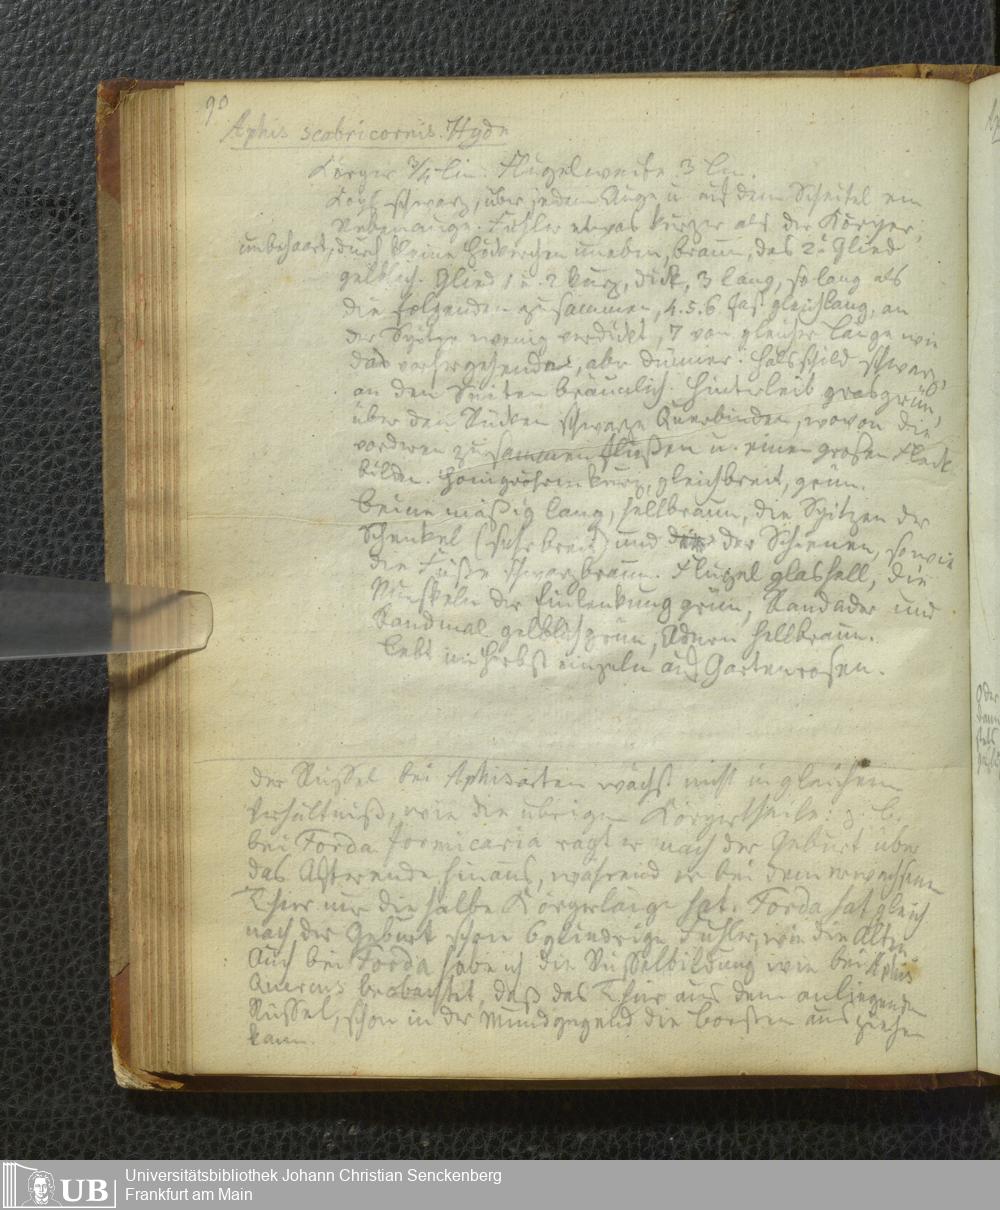 90
Aphis scabricornis. Heyden
Körper 3/4 lin. Flügelweite 3 lin.
Kopf schwarz, über jedem Auge u. auf dem Scheitel ein
Nebenauge. Fühler etwas kürzer als der Körper,
unbehaart, durch kleine Höckerchen uneben, braun, das 2te Glied
gelblich. Glied 1 u. 2 kurz, dick, 3 lang, so lang als
die folgenden zusammen, 4. 5. 6 fast gleichlang, an
der Spitze wenig verdickt, 7 von gleicher Länge wie
das vorhergehende, aber dünner. Halsschild schwarz,
an den Seiten bräunlich. Hinterleib grasgrün,
über den Rücken schwarze Querbinden, wovon die
vorderen zusammenfließen u. einen großen Fleck
bilden. Honigröhren kurz, gleichbreit, grün.
Beine mäßig lang, hellbraun, die Spitzen der
Schenkel (sehr breit) und der Schienen, sowie
die Füße schwarzbraun. Flügel glashell, die
Muskeln der Einlenkung grün, Randader und
Randmal gelblichgrün, Adern hellbraun.
Lebt im Herbst einzeln auf Gartenrosen.
Der Rüssel bei Aphisarten wächst nicht in gleichem
Verhältniß, wie die übrigen Körpertheile: z. B.
bei Forda formicaria ragt er nach der Geburt über
das Afterende hinaus, während er bei dem erwachsenen
Thier nur die halbe Körperlänge hat. Forda hat gleich
nach der Geburt schon 6gliedrige Fühler, wie die Alten
Auch bei Forda habe ich die Rüsselbildung wie bei Aphis
Quercus beobachtet, daß das Thier aus dem anliegenden
Rüssel, schon in der Mundgegend die Borsten ausziehen
kann.
Universitätsbibliothek Johann Christian Senckenberg
Frankfurt am Main
UB